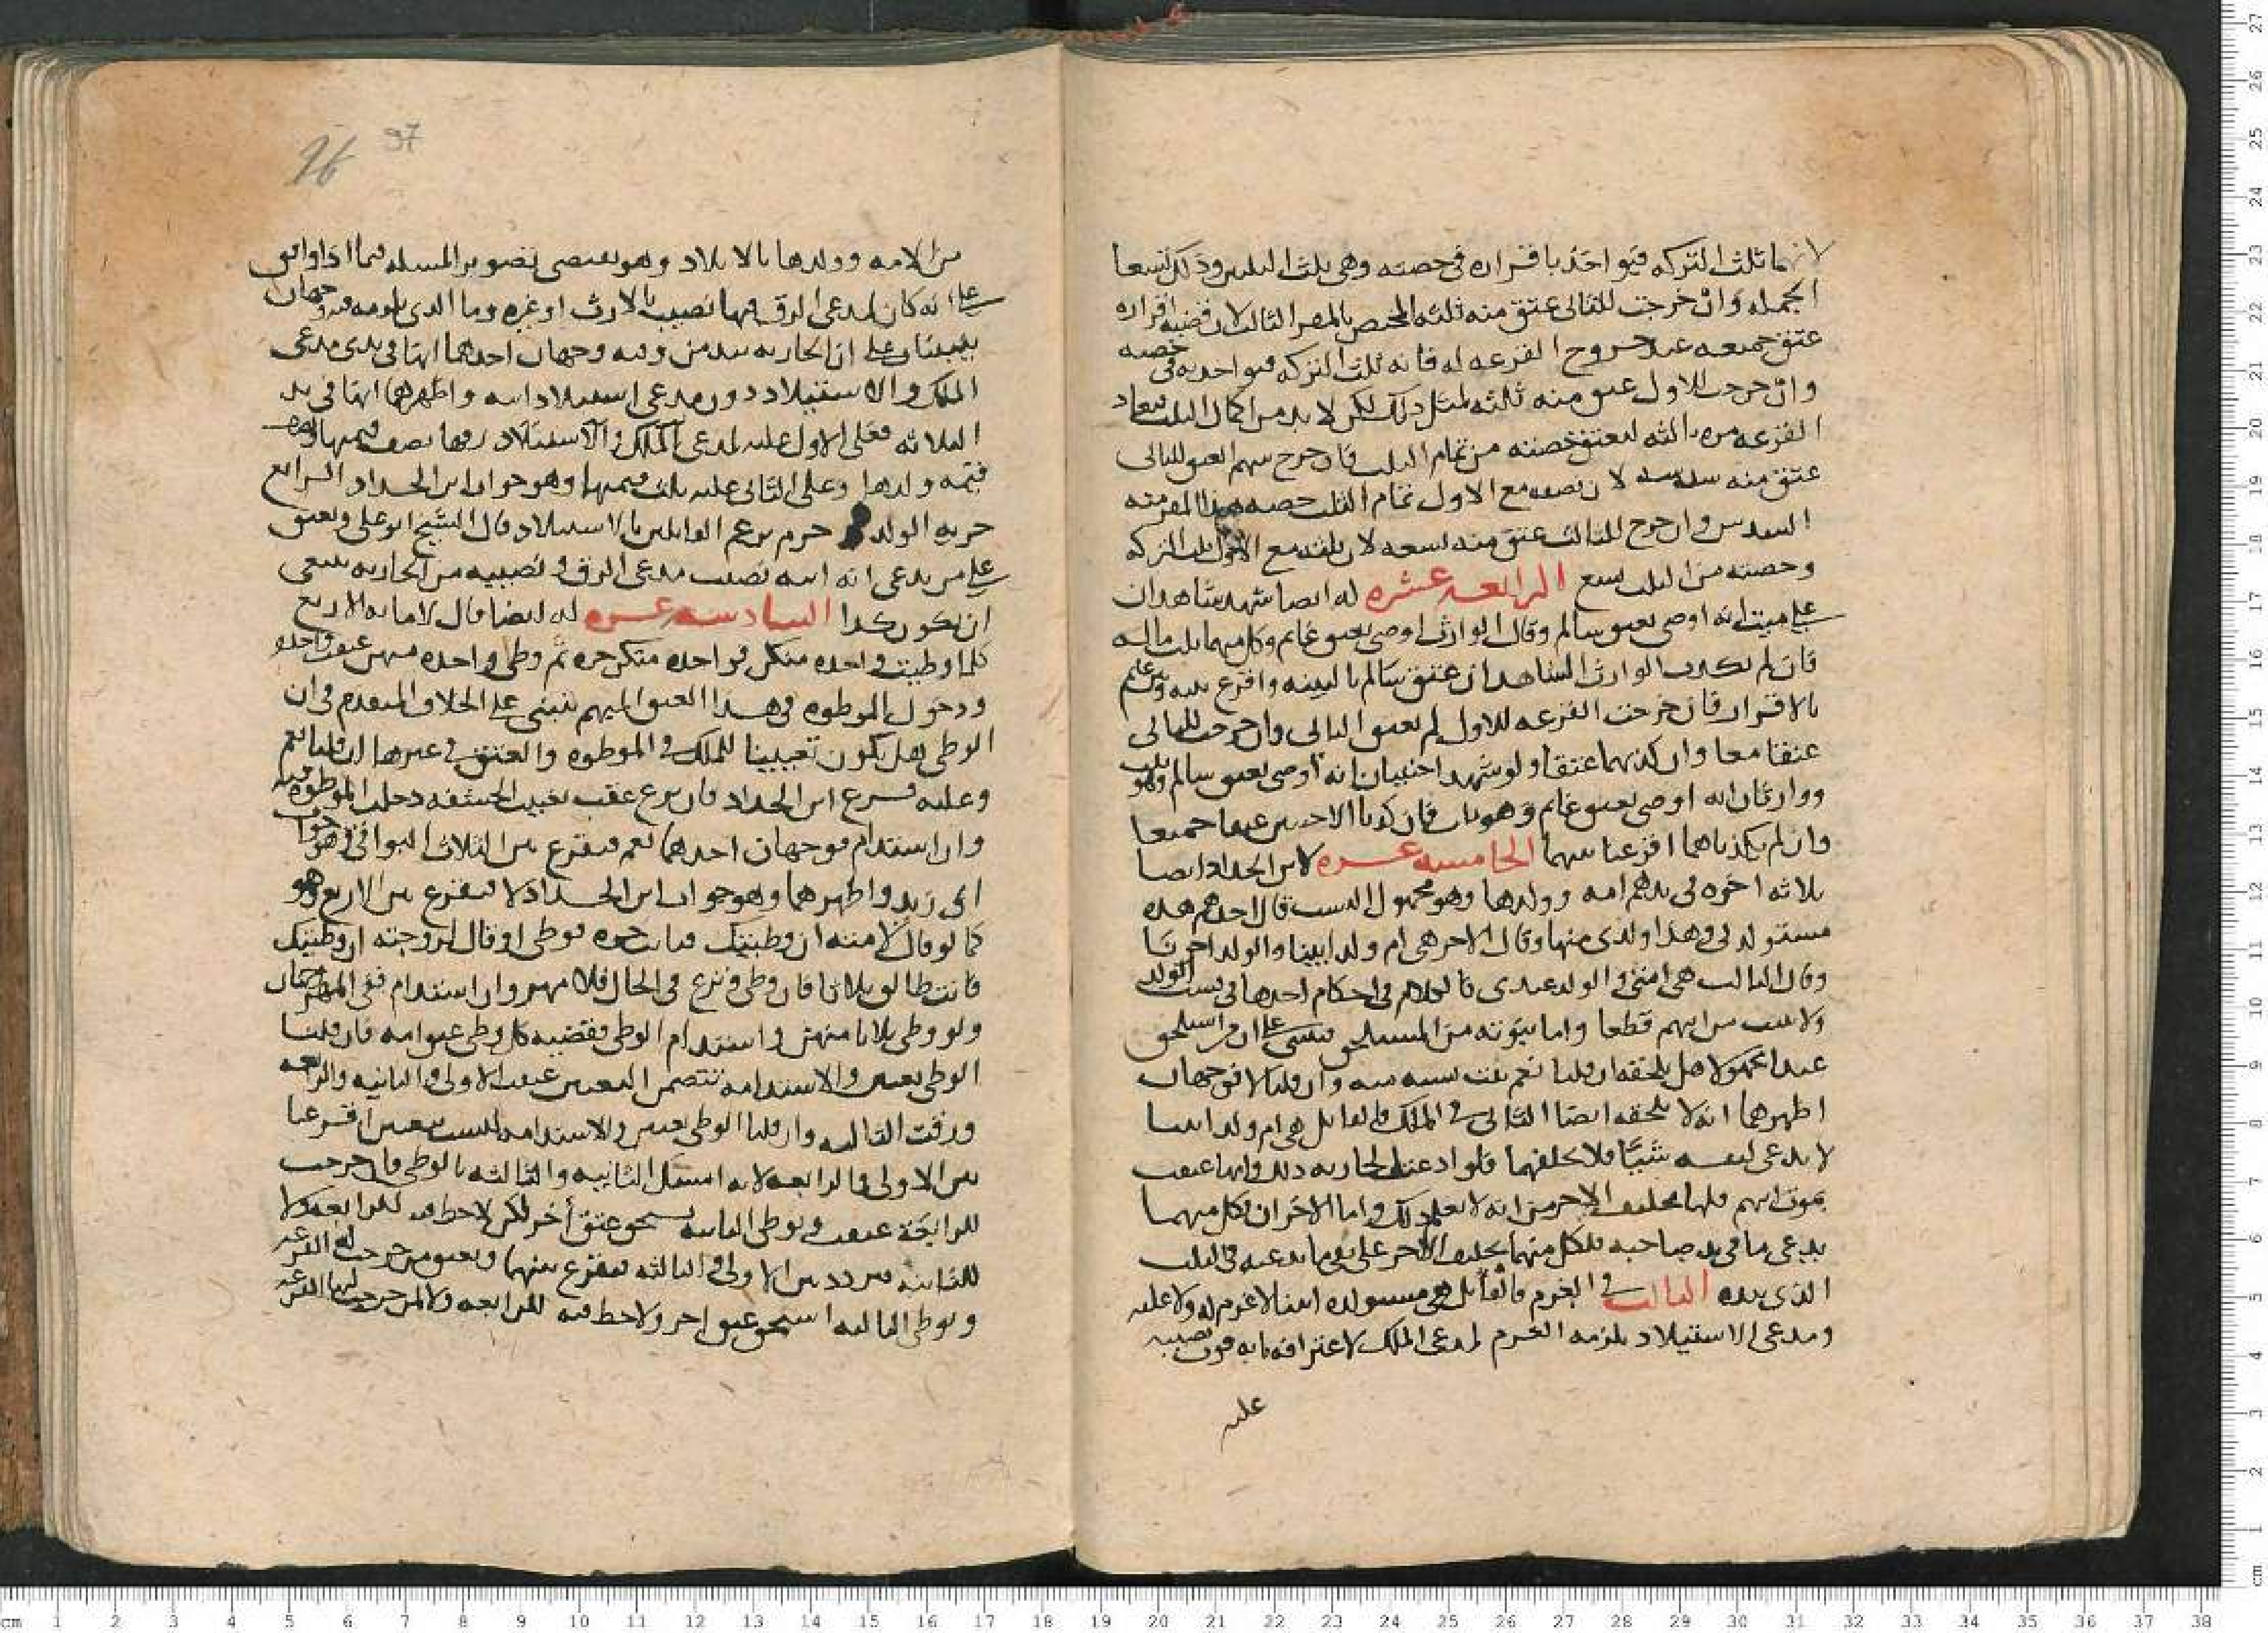 لانهما ثلث التركه فيواخذ باقراره في حصته وهي ثلث الثلثين وذلك تسعا
الجمله وان خرجت للثاني عتق منه ثلثه المختص بالمقر الثالث لان قضيه اقراره
عتق جميعه عند خروج القرعه له فانه ثلث التركه فيواخذ به في حصته
وان خرجت للاول عتق منه ثلثه لمثل ذلك لكن لا بد من اكمال الثلث فتعاد
القرعه مره ثالثه لتعتق حصته من تمام الثلث فان خرج سهم العتق للثاني
عتق منه سدسه لان نصفه مع الاول تمام الثلث حصه هذا المقر منه
السدس وان خرج للثالث عتق منه تسعه لان ثلثه مع الاول ثلث التركه
وحصته من الثلث تسع الرابعه عشره له ايضا شهد شاهدان
على ميت انه اوصى بعتق سالم وقال الوارث اوصى بعتق غانم وكل منهما ثلث ماله
فان لم يكذب الوارث الشاهدان عتق سالم بالبينه واقرع بينه وبين غانم
بالاقرار فان خرجت القرعه للاول لم يعتق الثاني وان خرجت للثاني
عتقا معا وان كذبهما عتقا ولو شهد اجنبيان انه اوصى بعتق سالم وهو ثلث
ووارثان انه اوصى بعتق غانم وهو ثلث فان كذبا الاجنبيين عتقا جميعا
وان لم يكذباهما اقرعنا بينهما الخامسه عشره لابن الحداد ايضا
ثلاثه اخوه في يدهم امه وولدها وهو مجهول النسب قال احدهم هذه
مستولدتي وهذا ولدي منها وقال الاخر هي ام ولد ابينا والولد اخونا
وقال الثالث هي امتي والولد عبدي فالكلام في احكام احدها في نسب الولد
ولا نسب من ابيهم قطعا واما ثبوته من المستلحق فينبني على ان من استلحق
عبدا مجهولا هل يلحقه ان قلنا نعم ثبت نسبه منه وان قلنا لا فوجهان
اظهرهما انه لا يلحقه ايضا الثاني في الملك فالقايل هي ام ولد ابينا
لا يدعي لنفسه شيئا فلا يحلفهما فلو ادعت الجاريه ذلك وانها عتقت
بموت ابيهم فلها تحليف الاخرين انه لا يعلم ذلك واما الاخران فكل منهما
يدعي ما في يد صاحبه فلكل منهما يحلف الاخر على نفي ما يدعيه في الثلث
الذي بيده الثالث في الغرم فالقايل هي مستولده ابينا لا غرم له ولا عليه
ومدعي الاستيلاد يلزمه الغرم لمدعي الملك لاعترافه بانه فوت نصيبه
عليه
97
من الامه وولدها بالايلاد وهو يقتضي تصوير المسله فيما اذا وافق
على انه كان لمدعي الرق فيها نصيب بالارث او غيره وما الذي يلزمه فيه وجهان
يبنيان على ان الجاريه بيد من وفيه وجهان احدهما انها في يدي مدعي
الملك والاستيلاد دون مدعي استيلاد ابيه واظهرهما انها في يد
الثلاثه فعلى الاول عليه لمدعي الملك والاستيلاد رقها نصف قيمتها ونصف
قيمه ولدها وعلى الثاني عليه ثلث قيمتها وهو جواب ابن الحداد الرابع
حريه الولد حرم بزعم القايلين بالاستيلاد قال الشيخ ابو علي ويعتق
على من يدعي انه ابنه نصيب مدعي الرق ونصيبه من الجاريه ينبغي
ان يكون كذا السادسه عشره له ايضا قال لامايه الاربع
كلما وطيت واحده منكن فواحده منكن حره ثم وطي واحده منهن عتقت واحده
ودخول الموطوه في هذا العتق المبهم ينبني على الخلاف المتقدم في ان
الوطي هل يكون تعيينا للملك في الموطوه والعتق في غيرها ان قلنا نعم
وعليه فرع ابن الحداد فان نزع عقب تغييب الحشفه دخلت الموطوه فيه
وان استدام فوجهان احدهما نعم فيقرع بين الثلاث البواقي وهو جواب
ابي زيد واظهرهما وهو جواب ابن الحداد لا فيقرع بين الاربع وهو
كما لو قال لامته ان وطيتك فانت حره فوطي او قال لزوجته ان وطيتك
فانت طالق ثلاثا فان وطي ونزع في الحال فلا مهر وان استدام ففي المهر وجهان
ولو وطي ثلاثا منهن واستدام الوطي فقضيه كل وطي عتق امه فان قلنا
الوطي تعيين والاستدامه تتضمن التعيين عتقت الاولى والثانيه والرابعه
ورقت الثالثه وان قلنا الوطي تعيين والاستدامه ليست تعيين اقرعنا
بين الاولى والرابعه لانه امسك الثانيه والثالثه بالوطي فان خرجت
للرابعه عتقت وبوطي الثانيه يستحق عتق اخر لكن لا حظ فيه للرابعه ولا
للثانيه فيردد بين الاولى والثالثه فيقرع بينهما ويعتق من خرجت له القرعه
وبوطي الثالثه استحق عتق اخر ولا حظ فيه للرابعه ولا لمن خرجت لها القرعه